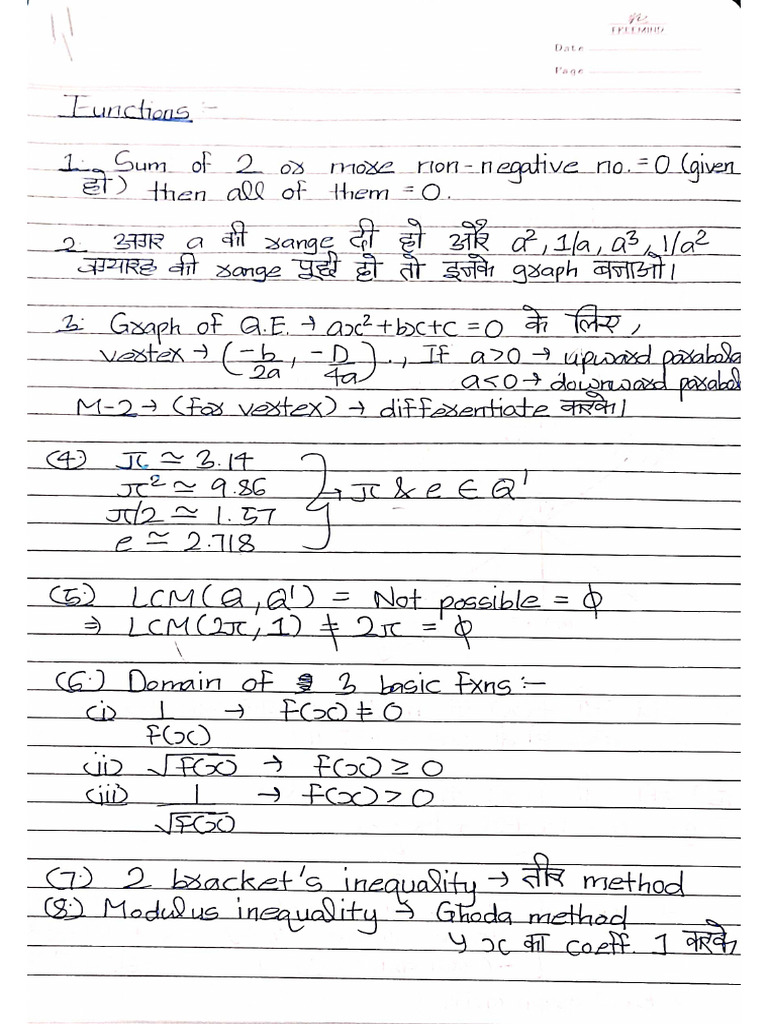 FREEMIND
Date
Page
Functions :-
1. Sum of 2 or more non-negative no. = 0 (given
हो) then all of them = 0.
2. अगर a की range दी हो और a², 1/a, a³, 1/a²
की range पूछी हो तो इनके graph बनाओ।
3. Graph of Q.E. → ax²+bx+c = 0 के लिए,
vertex → (-b/2a, -D/4a)., If a>0 → upward parabola
a<0 → downward parabol
M-2 → (for vertex) → differentiate करके।
(4.) π ≃ 3.14
π² ≃ 9.86 → π & e ∈ Q'
π/2 ≃ 1.57
e ≃ 2.718
(5.) LCM(Q, Q') = Not possible = ϕ
⇒ LCM(2π, 1) ≠ 2π = ϕ
(6.) Domain of 3 basic fxns :-
(i) 1/f(x) → f(x) ≠ 0
(ii) √f(x) → f(x) ≥ 0
(iii) 1/√f(x) → f(x) > 0
(7.) 2 bracket's inequality → तीर method
(8.) Modulus inequality → Ghoda method
↳ x का coeff. 1 करके